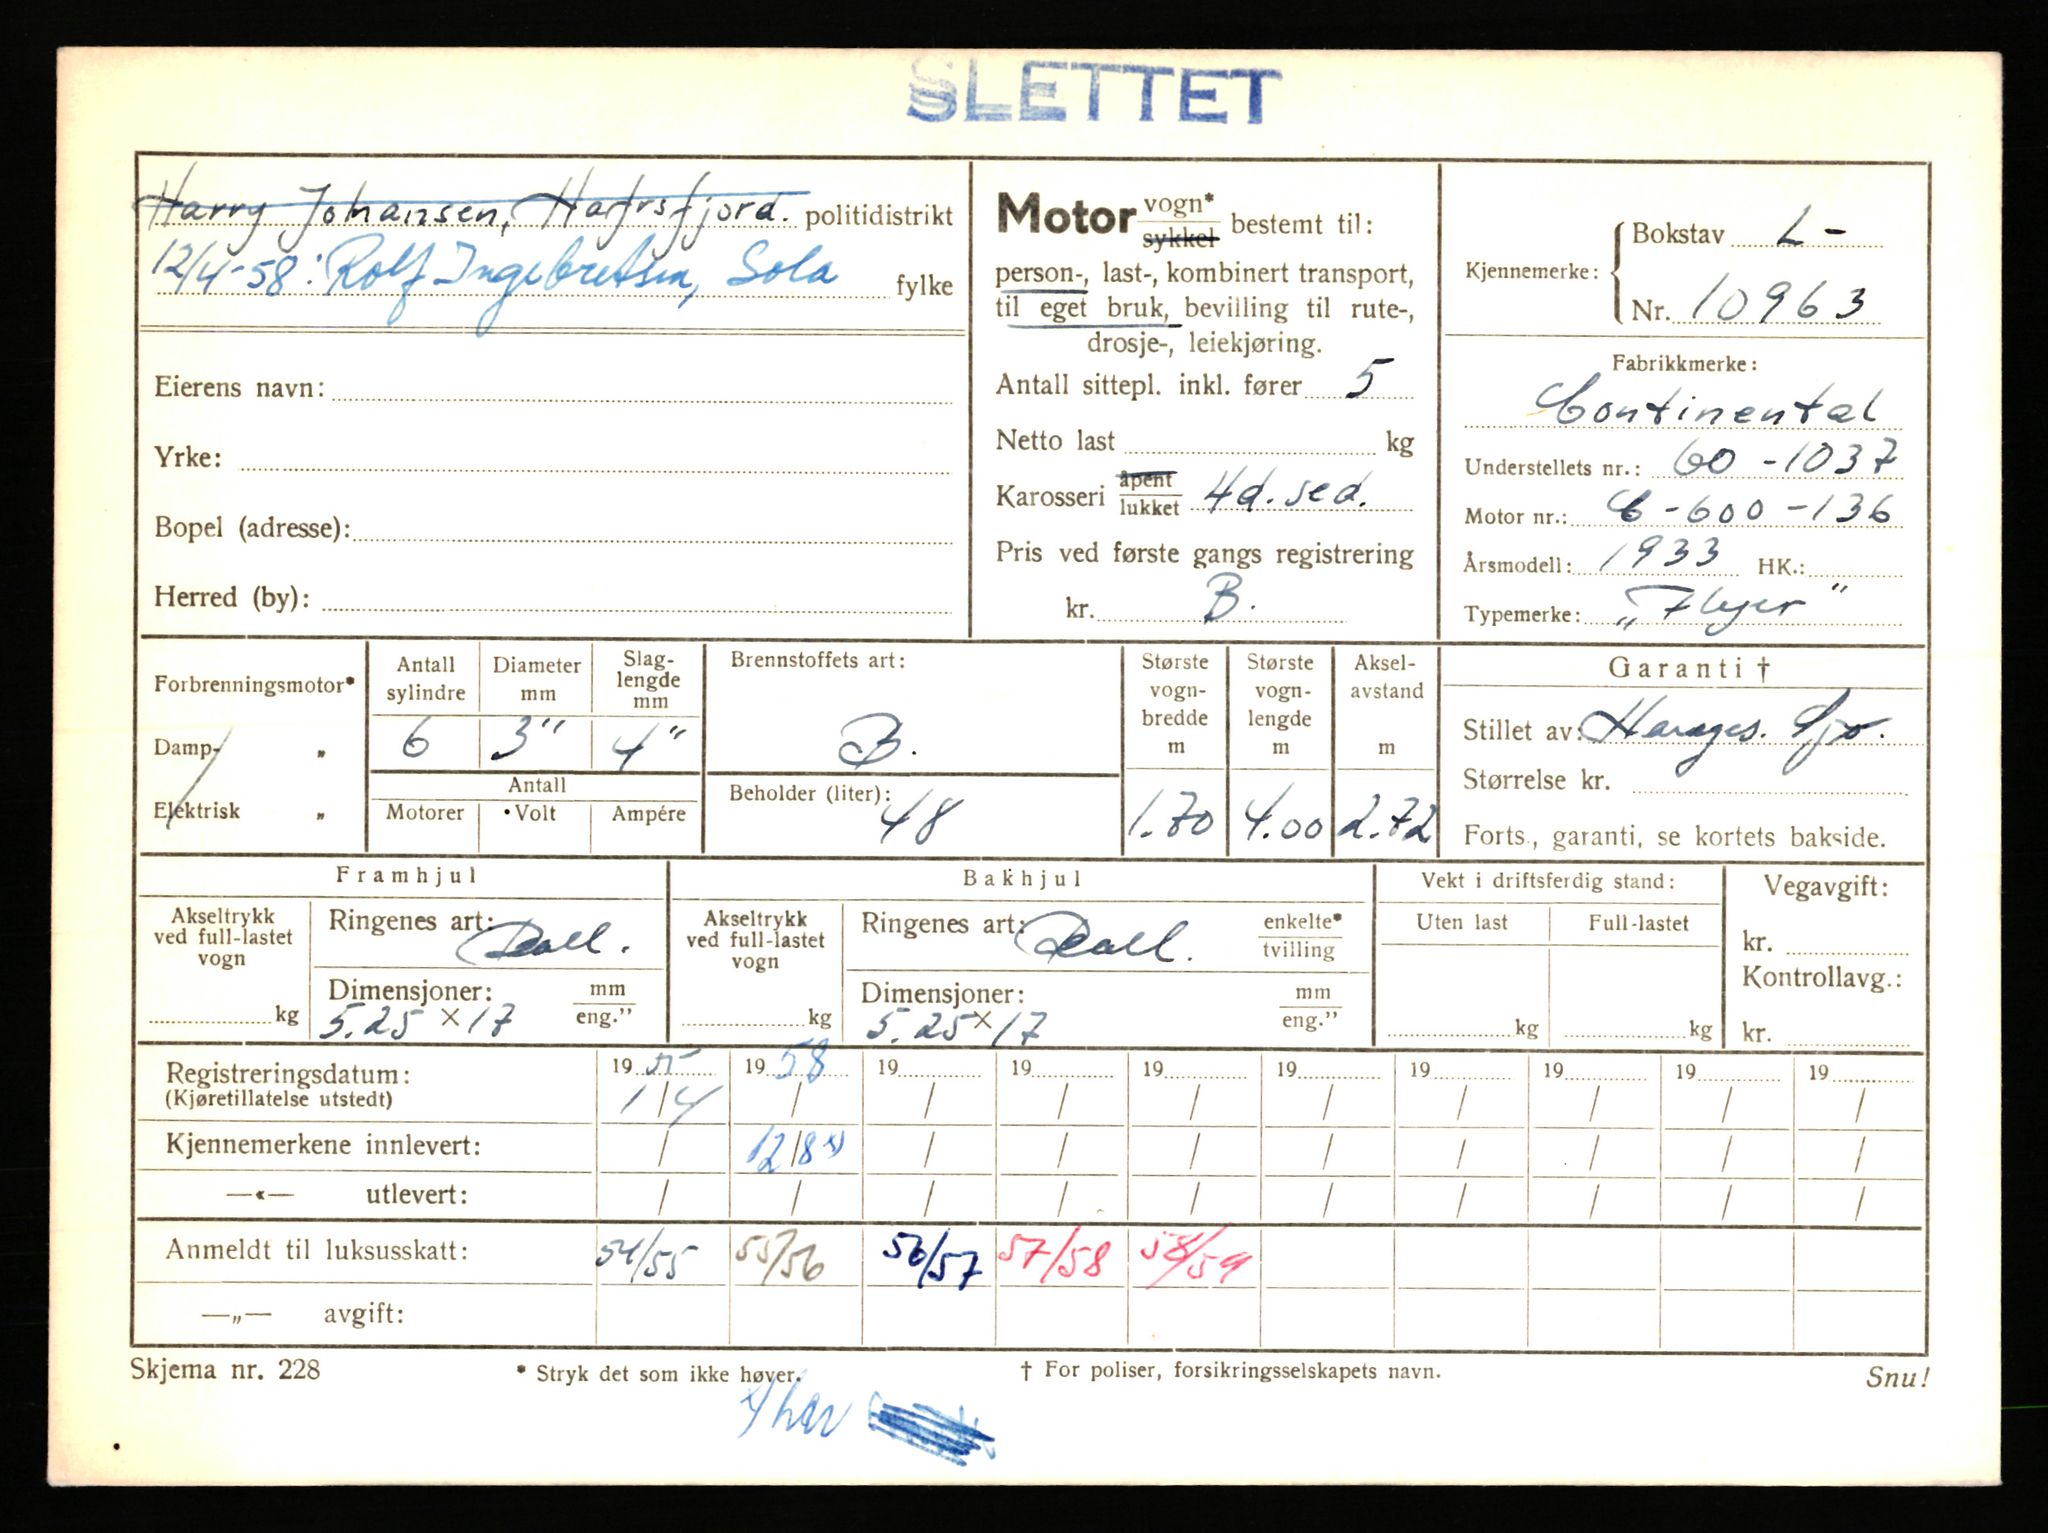 SLETTET
Harry Johansen, Hafrsfjord. politidistrikt
12/4-58: Rolf Ingebretsen, Sola fylke
Eierens navn:
Yrke:
Bopel (adresse):
Herred (by):
Motor vogn* sykkel bestemt til:
person-, last-, kombinert transport,
til eget bruk, bevilling til rute-,
drosje-, leiekjøring.
Antall sittepl. inkl. fører 5
Netto last kg
Karosseri åpent lukket 4d. sed.
Pris ved første gangs registrering
kr. B.
Kjennemerke: Bokstav L-
Nr. 10963
Fabrikkmerke:
Continental
Understellets nr.: 60-1037
Motor nr.: C-600-136
Årsmodell: 1933 HK.:
Typemerke: „Flyer"
Forbrenningsmotor*
Damp- „
Elektrisk „
Antall sylindre 6
Diameter mm 3"
Slag-lengde mm 4"
Antall
Motorer Volt Ampére
Brennstoffets art:
B.
Beholder (liter): 48
Største vogn-bredde m 1.70
Største vogn-lengde m 4.00
Aksel-avstand m 2.72
Garanti †
Stillet av:
Størrelse kr.
Forts., garanti, se kortets bakside.
Framhjul
Akseltrykk ved full-lastet vogn
kg
Ringenes art:
Dimensjoner: mm eng."
5.25 x 17
Bakhjul
Akseltrykk ved full-lastet vogn
kg
Ringenes art: enkelte* tvilling
Dimensjoner: mm eng."
5.25 x 17
Vekt i driftsferdig stand:
Uten last Full-lastet
kg kg
Vegavgift:
kr.
Kontrollavg.:
kr.
Registreringsdatum: 19 55 19 58 19 19 19 19 19 19 19 19
(Kjøretillatelse utstedt) 1/4 / / / / / / / / /
Kjennemerkene innlevert: / 12/8 x) / / / / / / / /
—«— utlevert: / / / / / / / / / /
Anmeldt til luksusskatt: 54/55 55/56 56/57 57/58 58/59
—„— avgift:
Skjema nr. 228 * Stryk det som ikke høver. † For poliser, forsikringsselskapets navn. Snu!